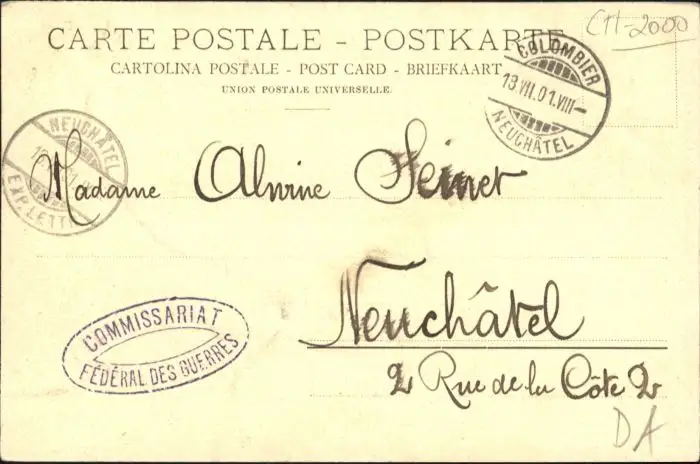 CH-2000
CARTE POSTALE - POSTKARTE
CARTOLINA POSTALE - POST CARD - BRIEFKAART
UNION POSTALE UNIVERSELLE.
COLOMBIER
13 VII.01.VIII-
NEUCHÂTEL
NEUCHÂTEL
EXP. LETT
Madame Alwine Seinet
Neuchâtel
2 Rue de la Côte 2
COMMISSARIAT
FÉDÉRAL DES GUERRES
DA